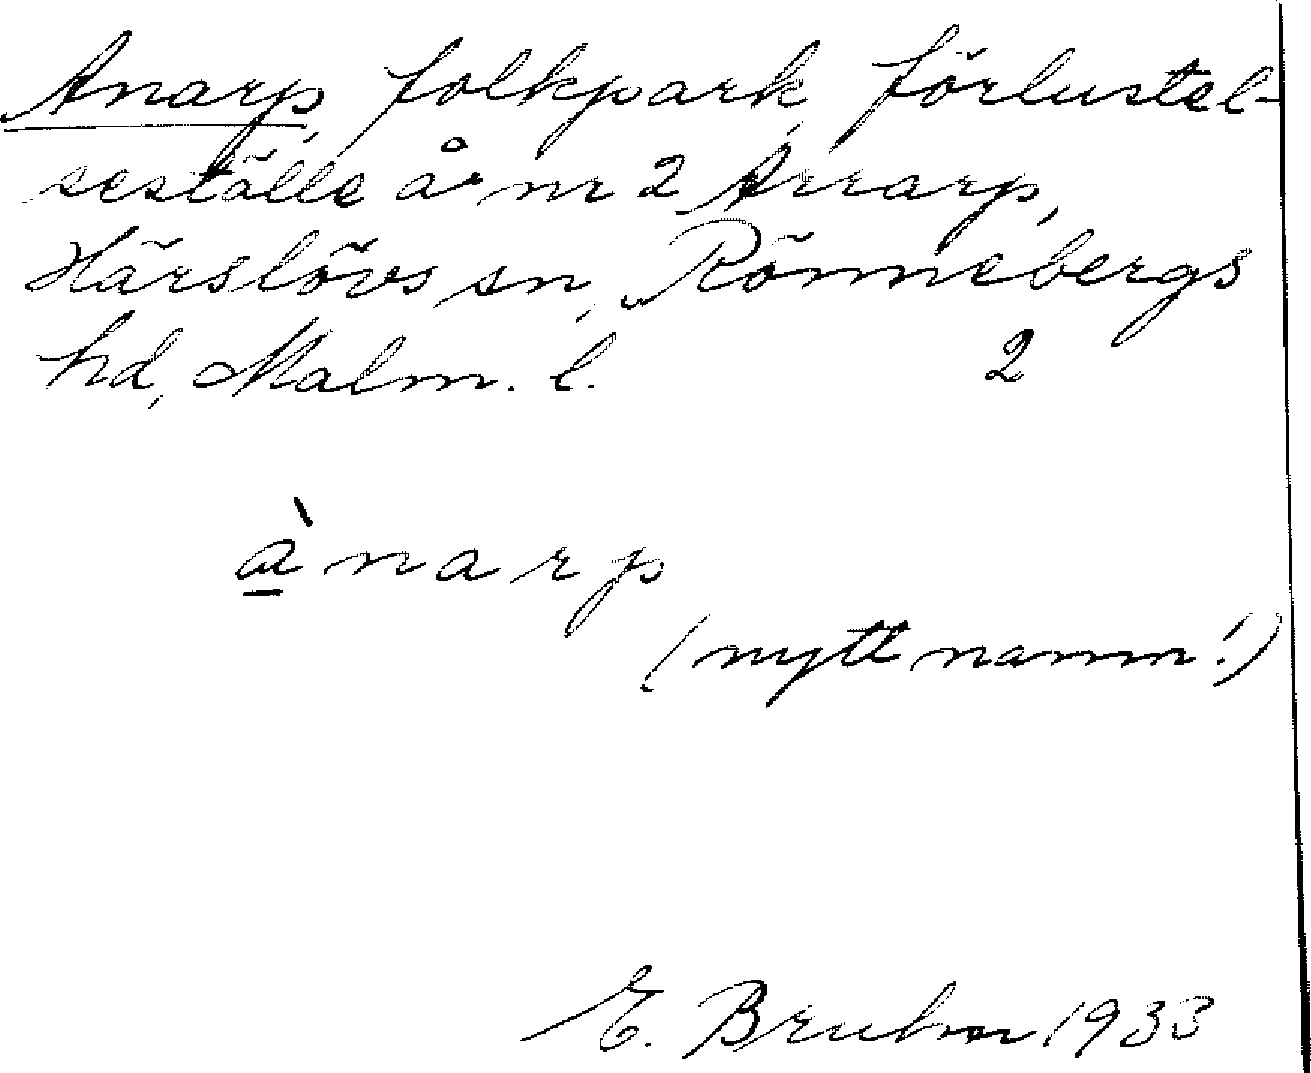 Anarp, folkpark, förlustel-
seställe å nr 2 Arrarp,
Härslövs sn, Rönnebergs
hd, Malm. l. 2
ànarp
(nytt namn!)
E. Bruhn 1933